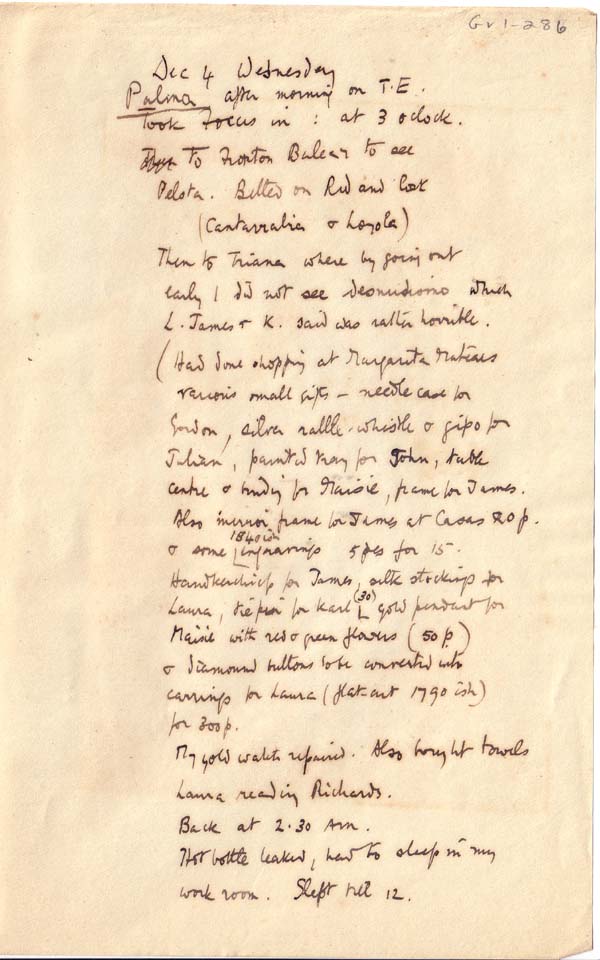 Gv1-286
Dec 4 Wednesday
Palma after morning on T.E.
Took Focus in : at 3 oclock.
to Fronton Balear to see
Pelota. Betted on Red and lost
(Cantarralia & Loyola)
Then to Triana where by going out
early I did not see desnudismo which
L. James & K. said was rather horrible.
(Had done shopping at Margarita Mateus
various small gifts – needle case for
Gordon, silver rattle-whistle & gipo for
Julian, painted tray for John, table
centre & for Maisie, frame for James.
Also mirror frame for James at Casas 20 p.
& some 1840ish engravings 5 pes for 15.
Handkerchief for James, silk stockings for
Laura, tie pin for Karl (30) gold pendant for
Maisie with red & green flowers (50 p.)
& diamound buttons to be converted into
earrings for Laura (flat-cut 1790 ish)
for 300p.
My gold watch repaired. Also bought towels
Laura reading Richards.
Back at 2.30 Am.
Hot bottle leaked, had to sleep in my
work room. Slept till 12.